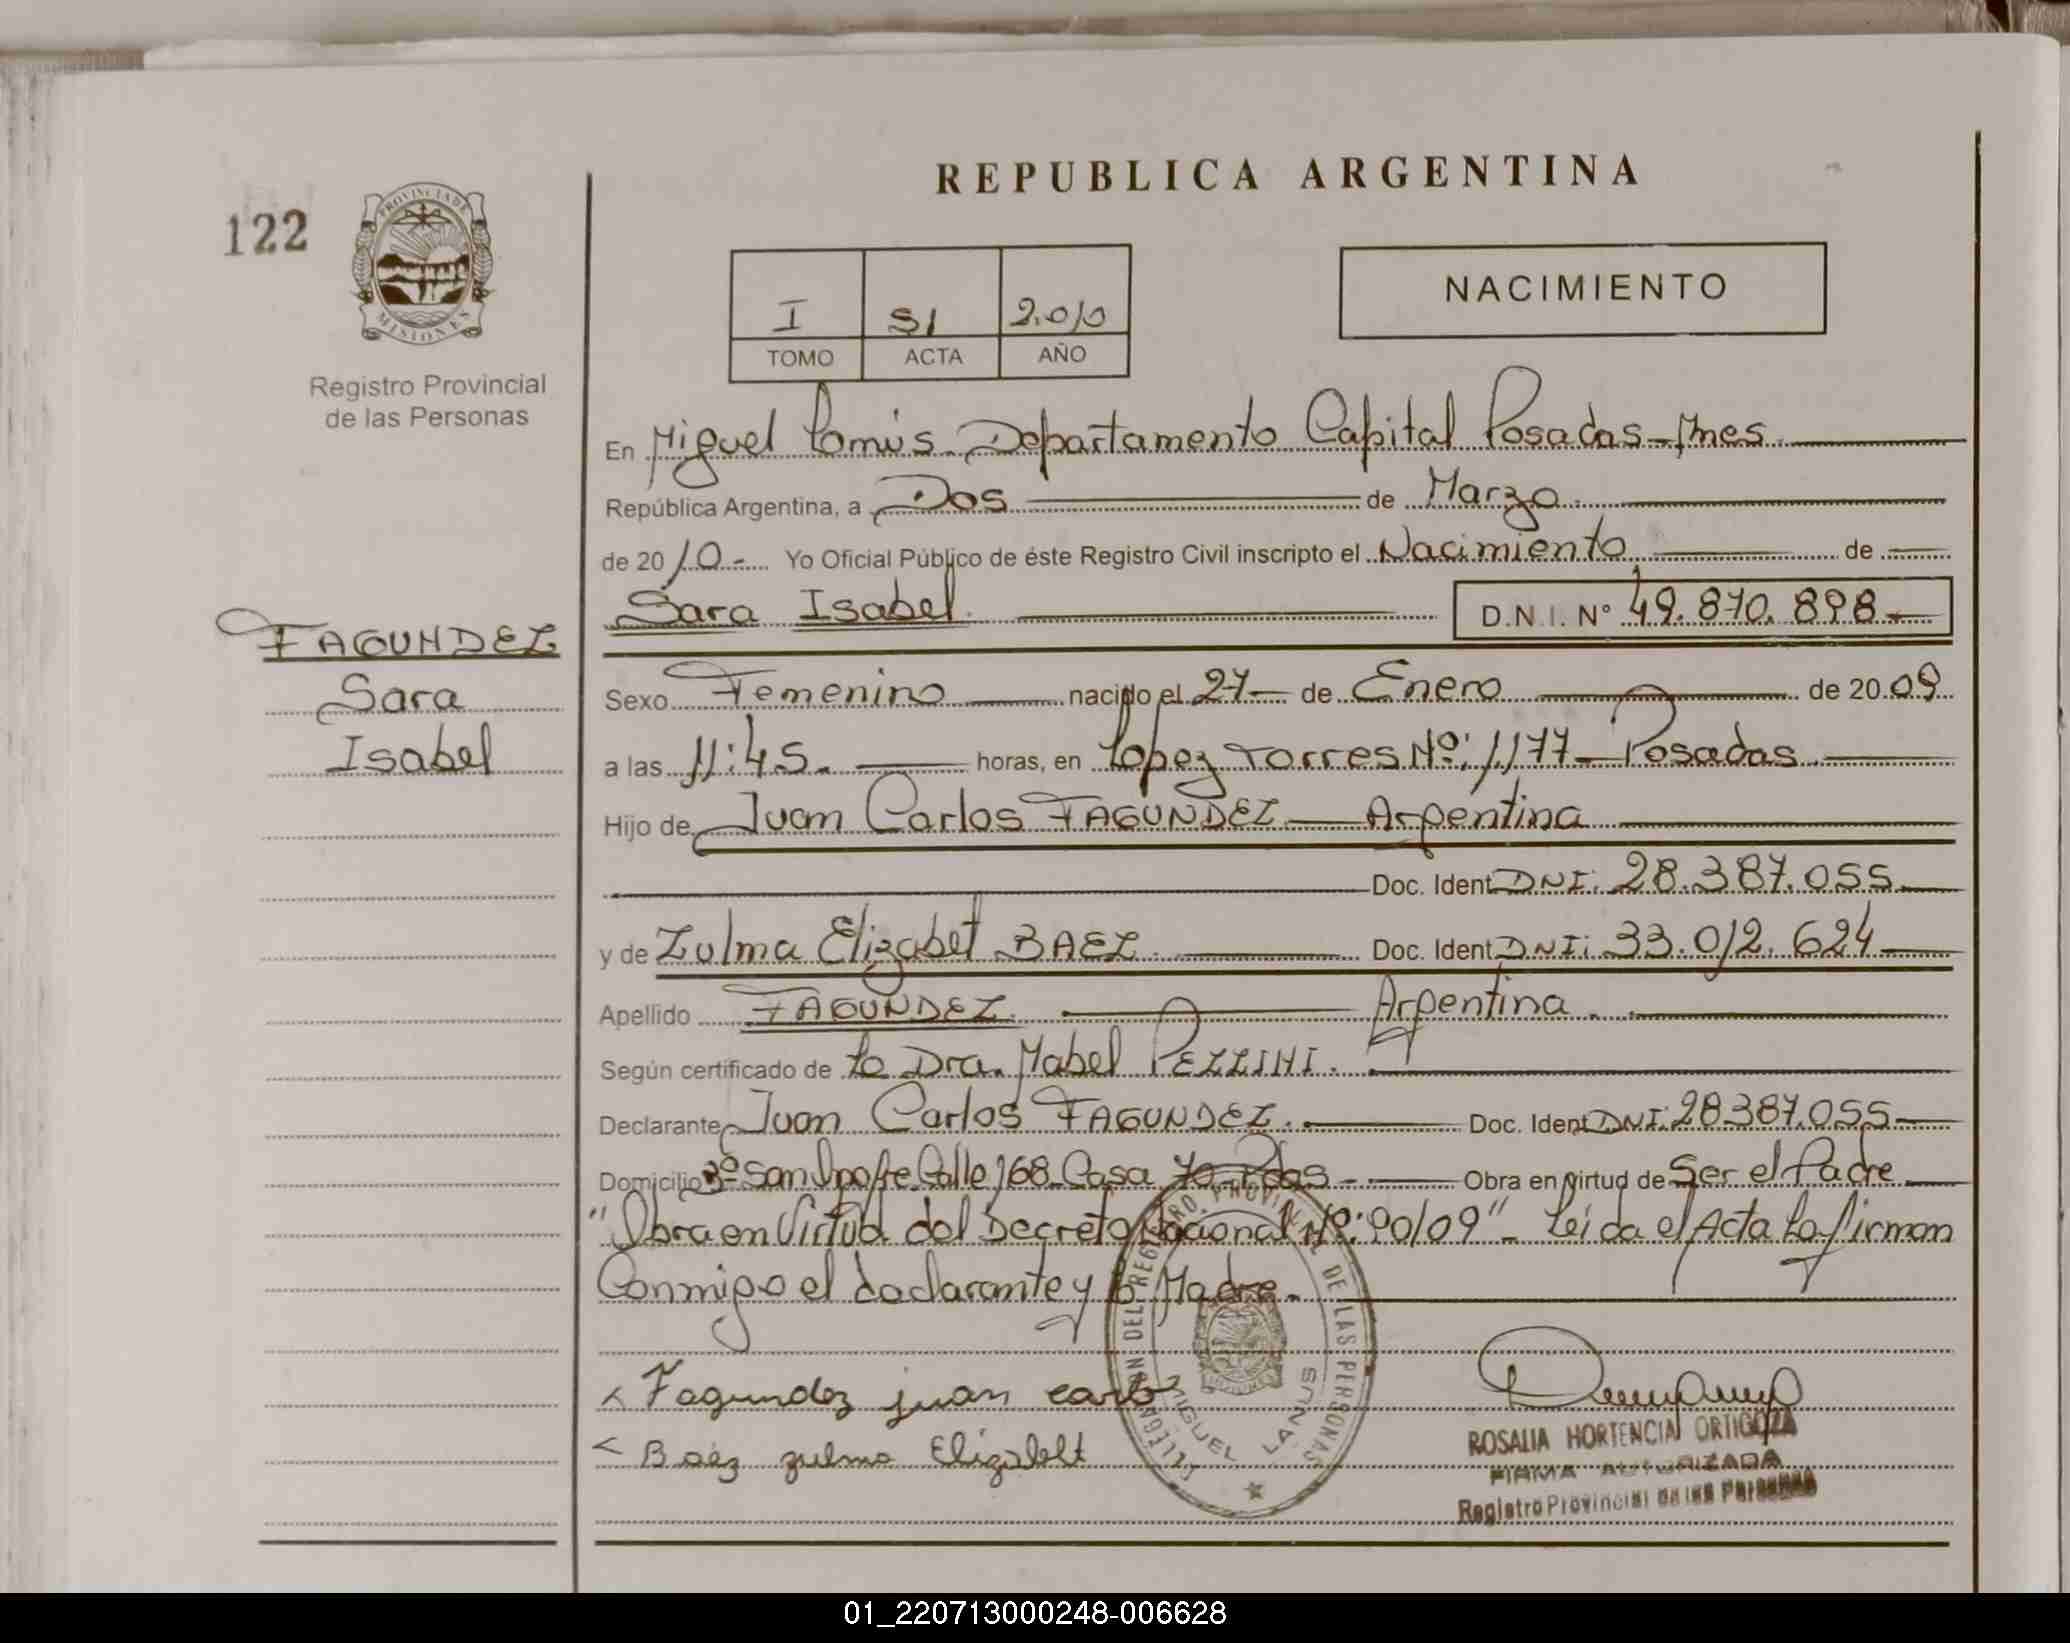 REPUBLICA ARGENTINA
122
PROVINCIA DE
MISIONES
Registro Provincial
de las Personas
NACIMIENTO
I 51 2.010
TOMO ACTA AÑO
En Miguel Lanús - Departamento Capital Posadas - Mnes.
República Argentina, a Dos de Marzo.
de 2010.- Yo Oficial Público de éste Registro Civil inscripto el Nacimiento de
Sara Isabel. D.N.I. Nº 49.870.898.-
FAGUNDEZ
Sara
Isabel
Sexo Femenino nacido el 27 de Enero de 2009
a las 11:45. horas, en Lopez Torres Nº: 1177 - Posadas.
Hijo de Juan Carlos FAGUNDEZ Argentina
Doc. Ident DNI: 28.387.055
y de Zulma Elizabet BAEZ. Doc. Ident DNI: 33.012.624
Apellido FAGUNDEZ. Argentina.
Según certificado de la Dra. Mabel PEZZINI.
Declarante Juan Carlos FAGUNDEZ. Doc. Ident DNI: 28387.055
Domicilio Bº San Onofre Calle 168 - Casa 70 - Pdas - Obra en virtud de Ser el Padre
"Obra en Virtud del Decreto Nacional Nº: 90/09" - Leída el Acta La firman
Conmigo el declarante y la Madre.
Fagundez juan carlo
Baéz zulma Elizabet
PROVINCIAL DE LAS PERSONAS
MIGUEL LANUS
ROSALIA HORTENCIA ORTIGOZA
FIRMA AUTORIZADA
Registro Provincial de las Personas
01_220713000248-006628